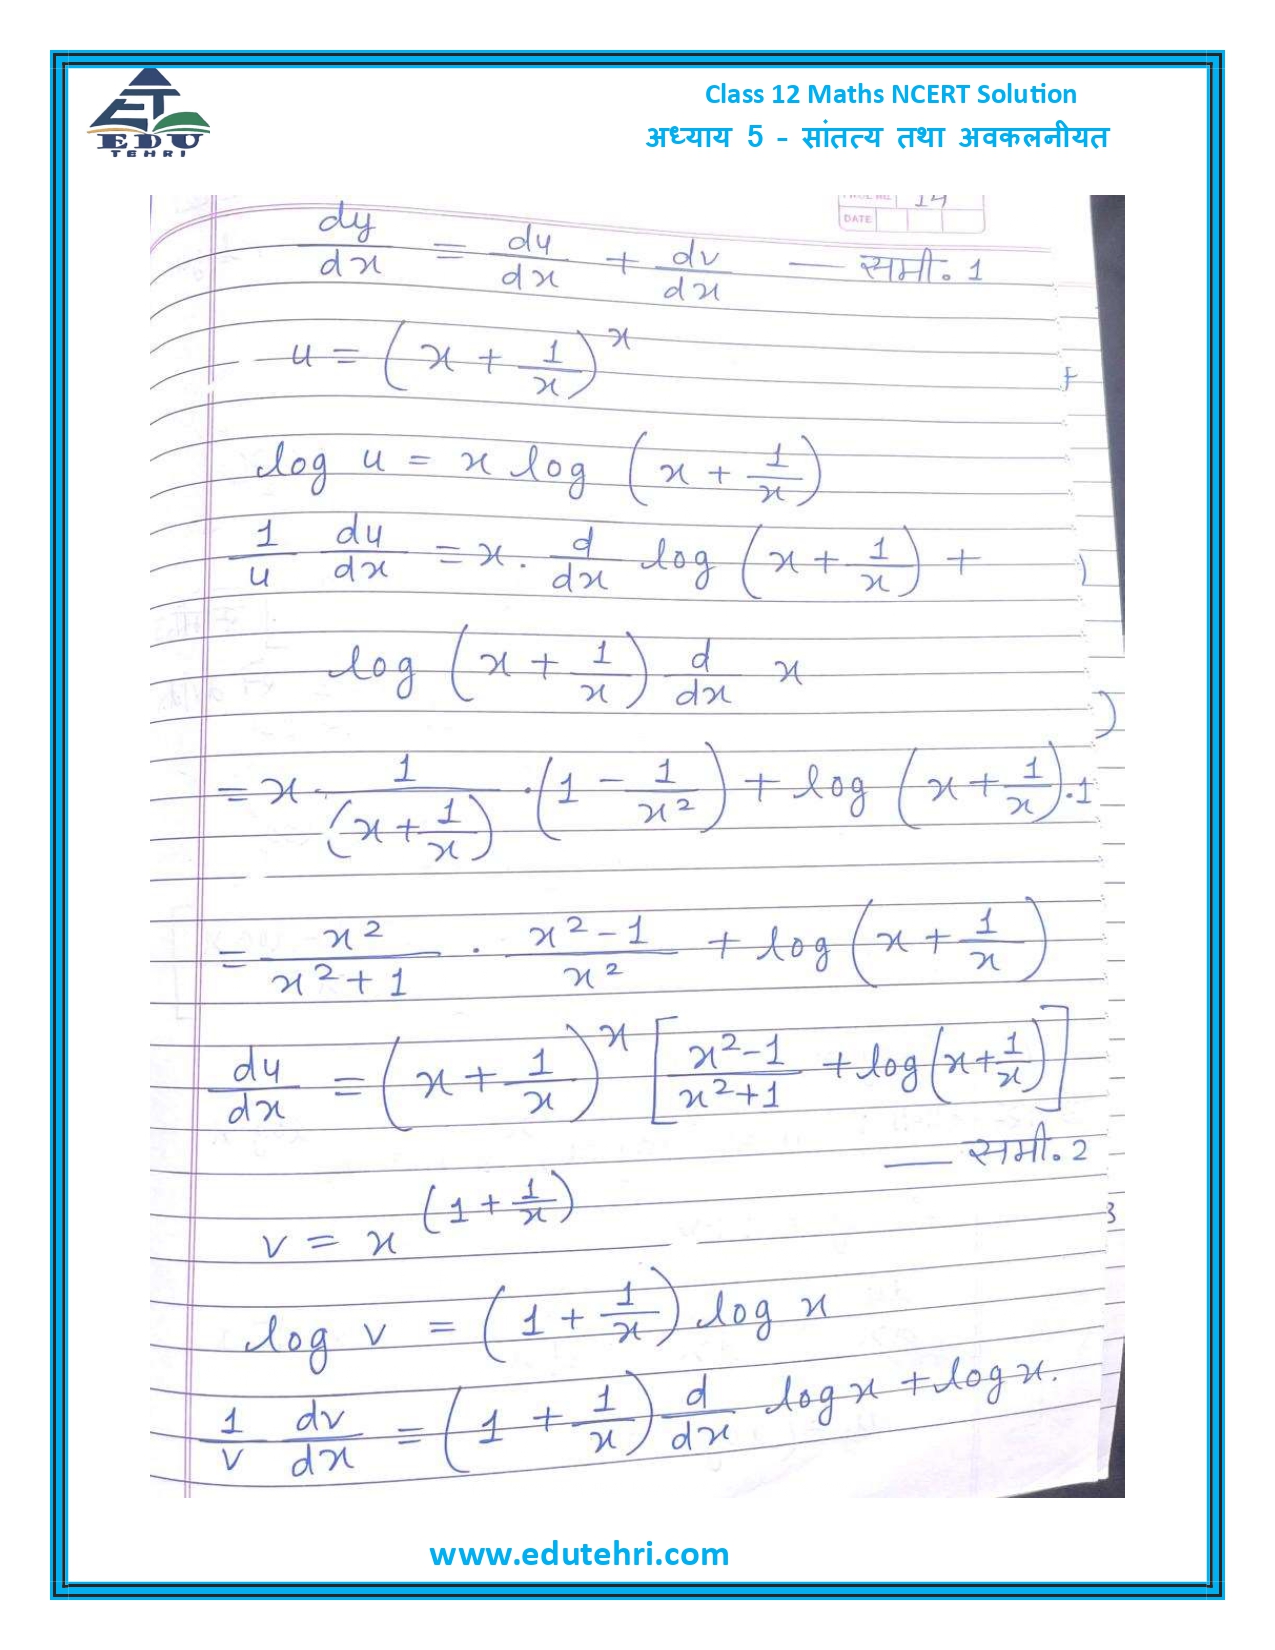 Class 12 Maths NCERT Solution
अध्याय 5 - सांतत्य तथा अवकलनीयत
EDU
TEHRI
14
DATE
dy/dx = du/dx + dv/dx — समी. 1
u = (x + 1/x)^x
log u = x log (x + 1/x)
1/u du/dx = x . d/dx log (x + 1/x) +
log (x + 1/x) d/dx x
= x . 1/(x + 1/x) . (1 - 1/x²) + log (x + 1/x) . 1
= x²/(x² + 1) . (x² - 1)/x² + log (x + 1/x)
du/dx = (x + 1/x)^x [(x² - 1)/(x² + 1) + log (x + 1/x)]
— समी. 2
v = x^(1 + 1/x)
log v = (1 + 1/x) log x
1/v dv/dx = (1 + 1/x) d/dx log x + log x.
www.edutehri.com